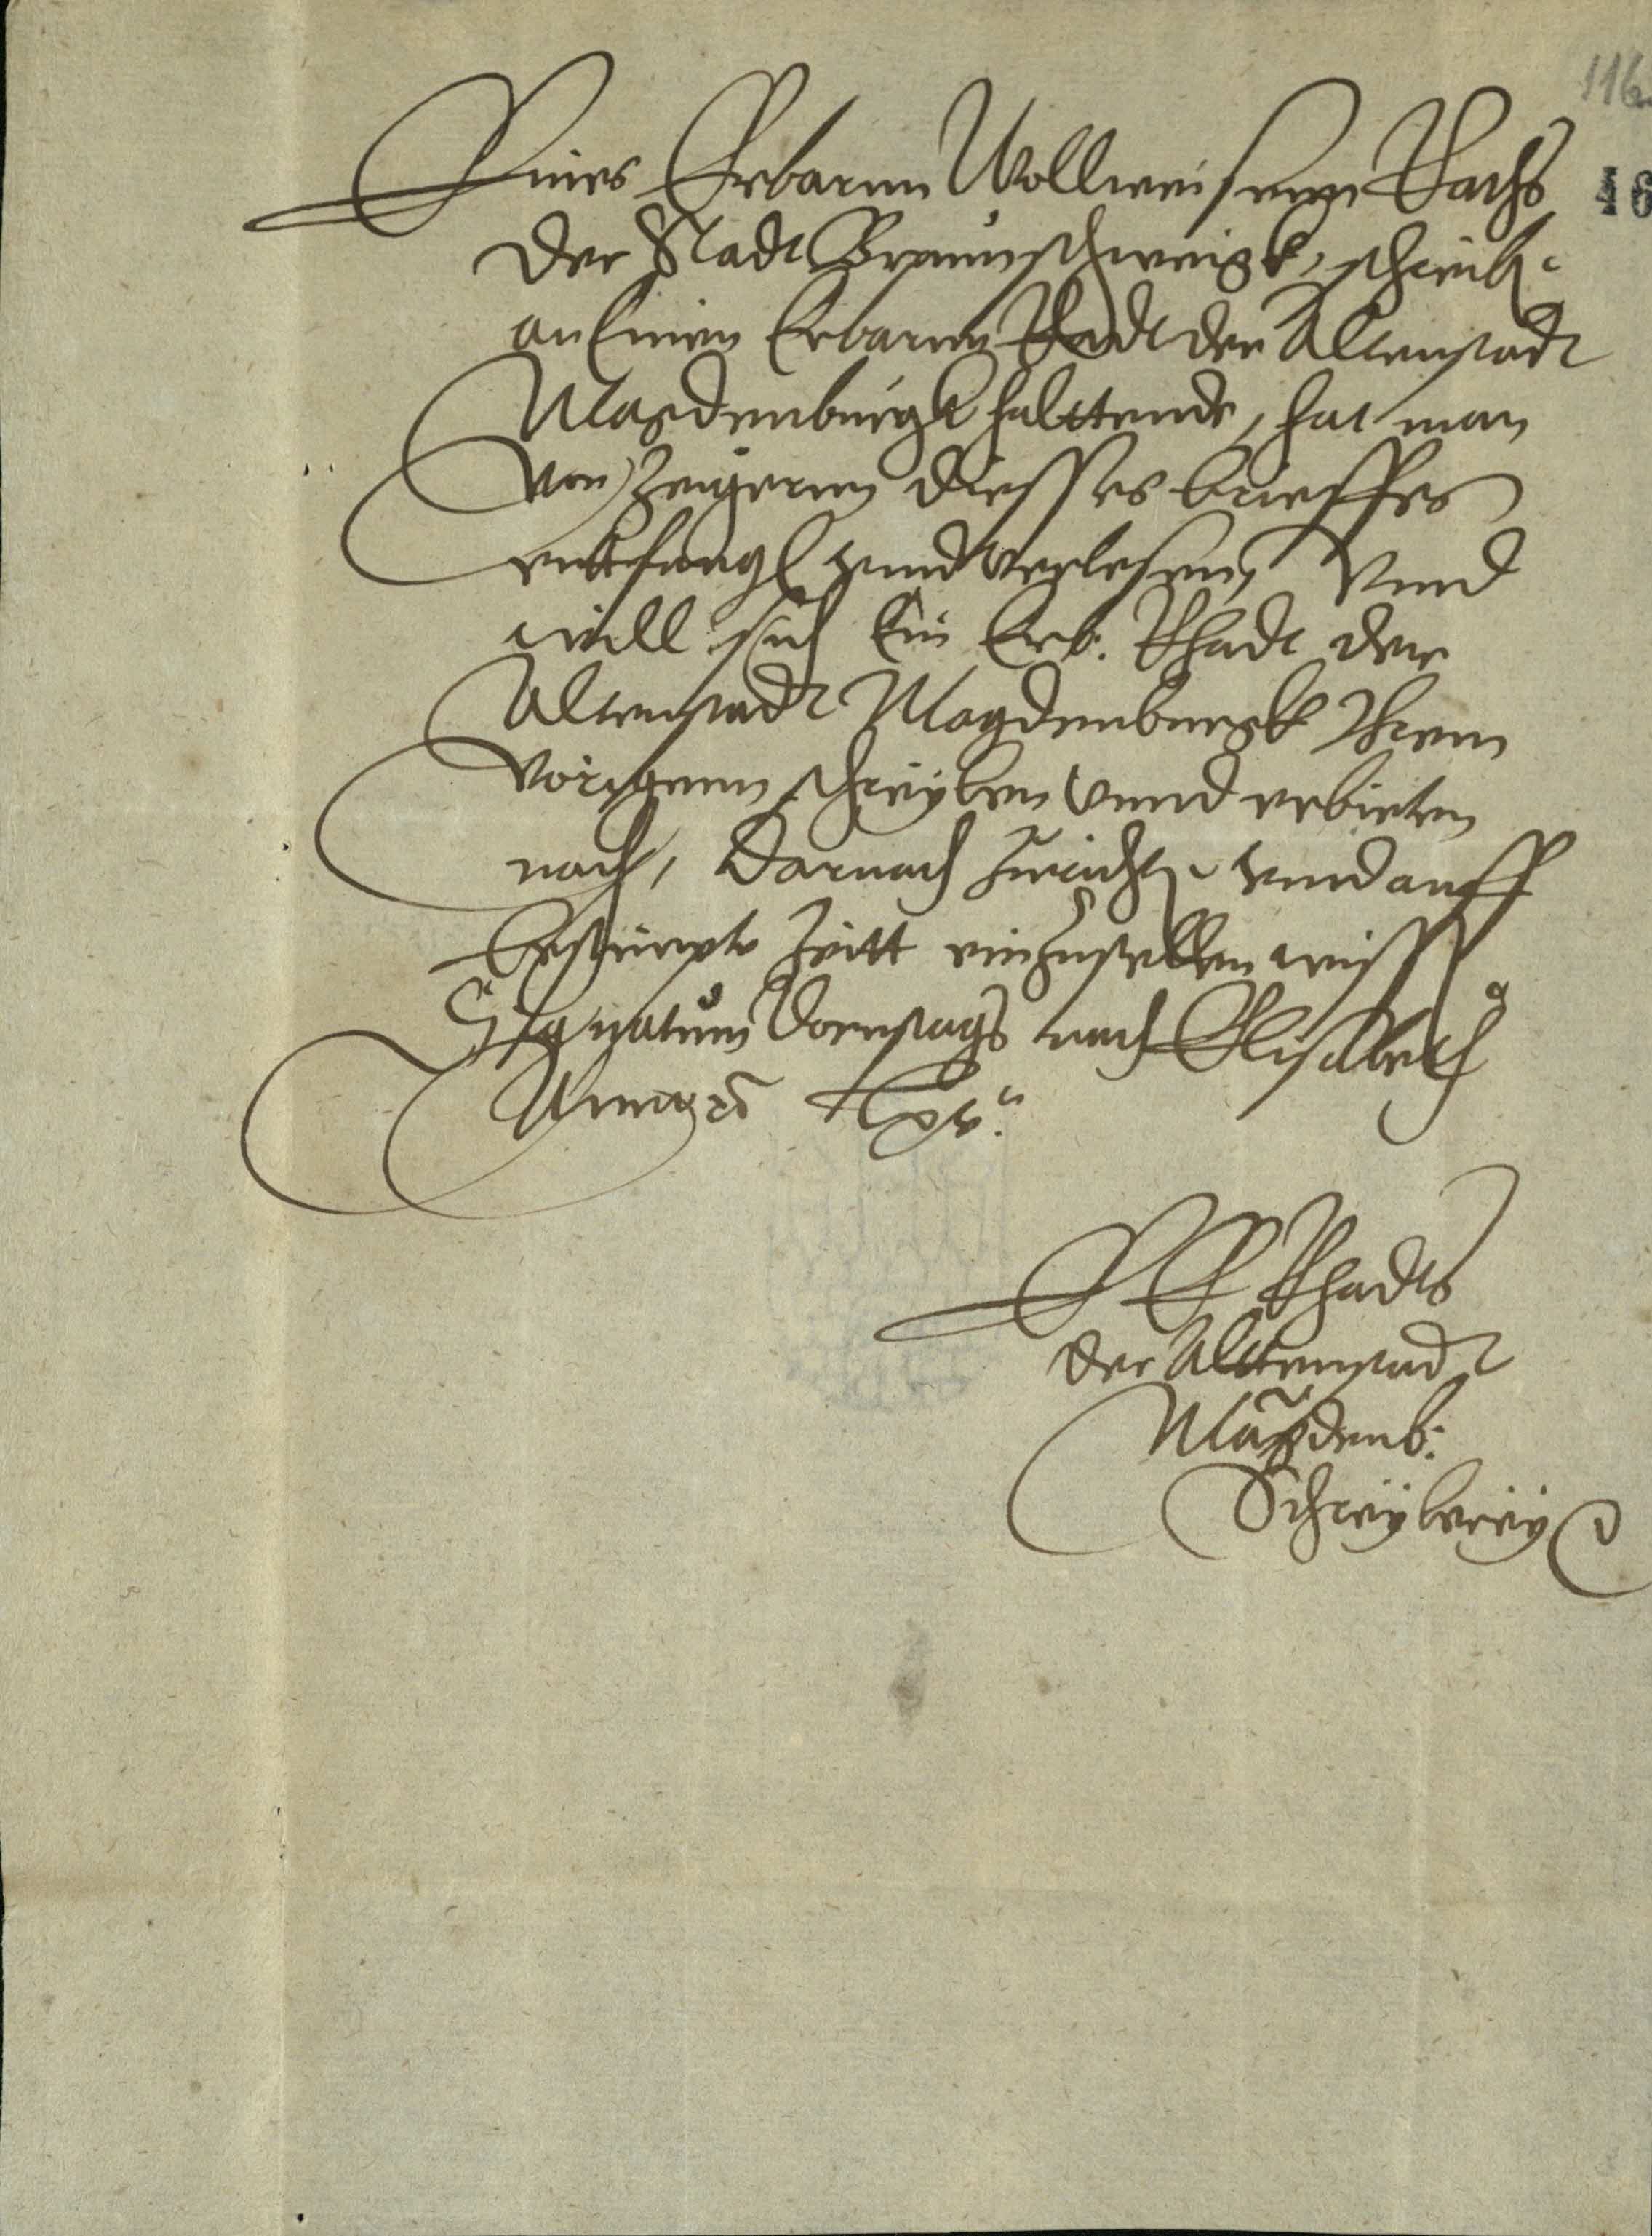 116
46
Eines Erbarnn Wollweisenn Raths
der Stadt Braunschweigk, schreib.
an Einen Erbarnn Radt der Altenstadt
Magdenburgk halttende, hat man
von Zeigernn diesses brieffes
entfang vnnd verlesenn, Vnnd
will sich Ein Erb. Rhadt der
Altenstadt Magdenburgk Ihrem
vorigenn schreybenn vnnd erbieten
nach, Darnach zurichten vnnd auff
bestimpte Zeitt einzustellen wissen
Signatum Dornstags nach Elisabeth
Anno
E E Rhadts
der Alttenstadt
Magdenb:
Schreyberey